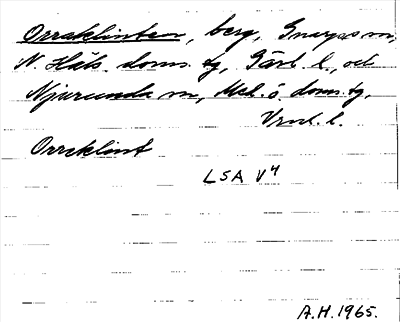 Orraklinten, berg, Gnarps sn,
N. Häls. doms. tg, Gävl. l., och
Njurunda sn, Med. ö. doms. tg.
Vrnl. l.
Orrklint
LSA V4
A.H. 1965.